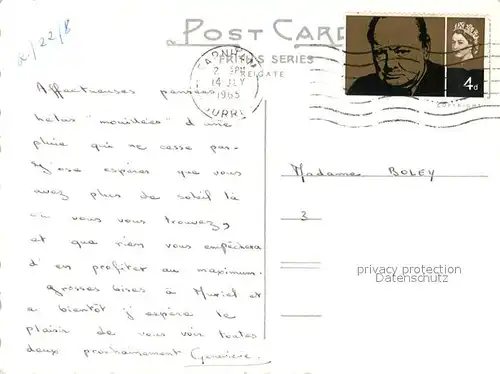 2/22/8
POST CARD
FRITH'S SERIES
REIGATE
FARNHAM
2 PM
14 JLY
1965
SURREY
4d
COPYRIGHT
Affectueuses pensées
hélas "mouillées" d'une
pluie qui ne cesse pas.
J'ose espérer que vous
avez plus de soleil là
où vous vous trouvez,
et que rien vous empêchera
d'en profiter au maximum.
Grosses bises à Muriel et
à bientôt j'espère le
plaisir de vous voir toutes
deux prochainement Geneviève.
Madame BOLEY
3
privacy protection
Datenschutz